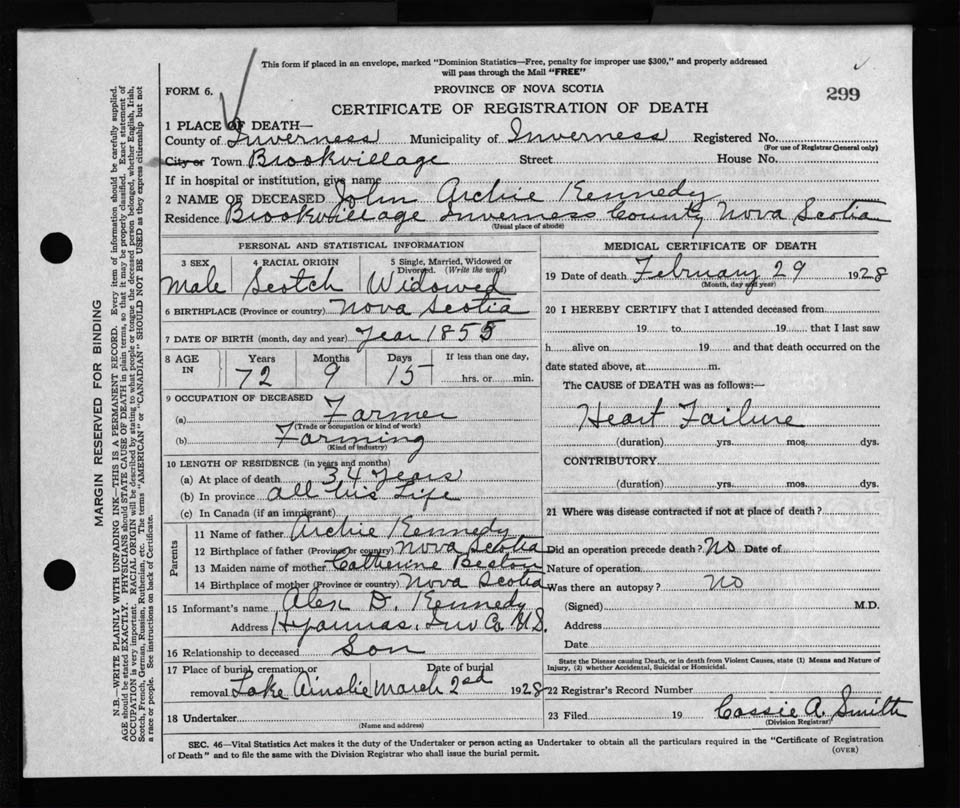 This form if placed in an envelope, marked "Dominion Statistics—Free, penalty for improper use $300," and properly addressed
will pass through the Mail "FREE"
FORM 6.
PROVINCE OF NOVA SCOTIA
299
CERTIFICATE OF REGISTRATION OF DEATH
1 PLACE OF DEATH—
County of Inverness Municipality of Inverness Registered No.
(For use of Registrar General only)
City or Town Brookvillage Street House No.
If in hospital or institution, give name
2 NAME OF DECEASED John Archie Kennedy
Residence Brookvillage Inverness County Nova Scotia
(Usual place of abode)
PERSONAL AND STATISTICAL INFORMATION
3 SEX 4 RACIAL ORIGIN 5 Single, Married, Widowed or
Divorced. (Write the word)
Male Scotch Widowed
6 BIRTHPLACE (Province or country) Nova Scotia
7 DATE OF BIRTH (month, day and year) Year 1855
8 AGE Years Months Days If less than one day,
IN 72 9 15 hrs. or min.
9 OCCUPATION OF DECEASED
(a) Farmer
(Trade or occupation or kind of work)
(b) Farming
(Kind of industry)
10 LENGTH OF RESIDENCE (in years and months)
(a) At place of death 34 years
(b) In province all his Life
(c) In Canada (if an immigrant)
Parents
11 Name of father Archie Kennedy
12 Birthplace of father (Province or country) Nova Scotia
13 Maiden name of mother Catherine Beaton
14 Birthplace of mother (Province or country) Nova Scotia
15 Informant's name Alex D. Kennedy
Address Inv Co. N.S.
16 Relationship to deceased Son
17 Place of burial, cremation or Date of burial
removal Lake Ainslie March 2nd 1928
18 Undertaker
(Name and address)
MEDICAL CERTIFICATE OF DEATH
19 Date of death February 29 1928
(Month, day and year)
20 I HEREBY CERTIFY that I attended deceased from
19 to 19 that I last saw
h alive on 19 and that death occurred on the
date stated above, at m.
The CAUSE of DEATH was as follows:—
Heart Failure
(duration) yrs. mos. dys.
CONTRIBUTORY
(duration) yrs. mos. dys.
21 Where was disease contracted if not at place of death?
Did an operation precede death? No Date of
Nature of operation
Was there an autopsy? No
(Signed) M.D.
Address
Date
State the Disease causing Death, or in death from Violent Causes, state (1) Means and Nature of
Injury, (2) whether Accidental, Suicidal or Homicidal.
22 Registrar's Record Number
23 Filed 19 Cassie A. Smith
(Division Registrar)
SEC. 46—Vital Statistics Act makes it the duty of the Undertaker or person acting as Undertaker to obtain all the particulars required in the "Certificate of Registration
of Death" and to file the same with the Division Registrar who shall issue the burial permit.
(OVER)
MARGIN RESERVED FOR BINDING
N.B.—WRITE PLAINLY WITH UNFADING INK—THIS IS A PERMANENT RECORD. Every item of information should be carefully supplied.
AGE should be stated EXACTLY. PHYSICIANS should STATE CAUSE OF DEATH in plain terms, so that it may be properly classified. Exact statement of
OCCUPATION is very important. RACIAL ORIGIN will be described by stating to what people or tongue the deceased person belonged, whether English, Irish,
Scotch, French, German, Russian, Ruthenian, etc. The terms "AMERICAN" or "CANADIAN" SHOULD NOT BE USED as they express citizenship but not
a race or people. See instructions on back of Certificate.